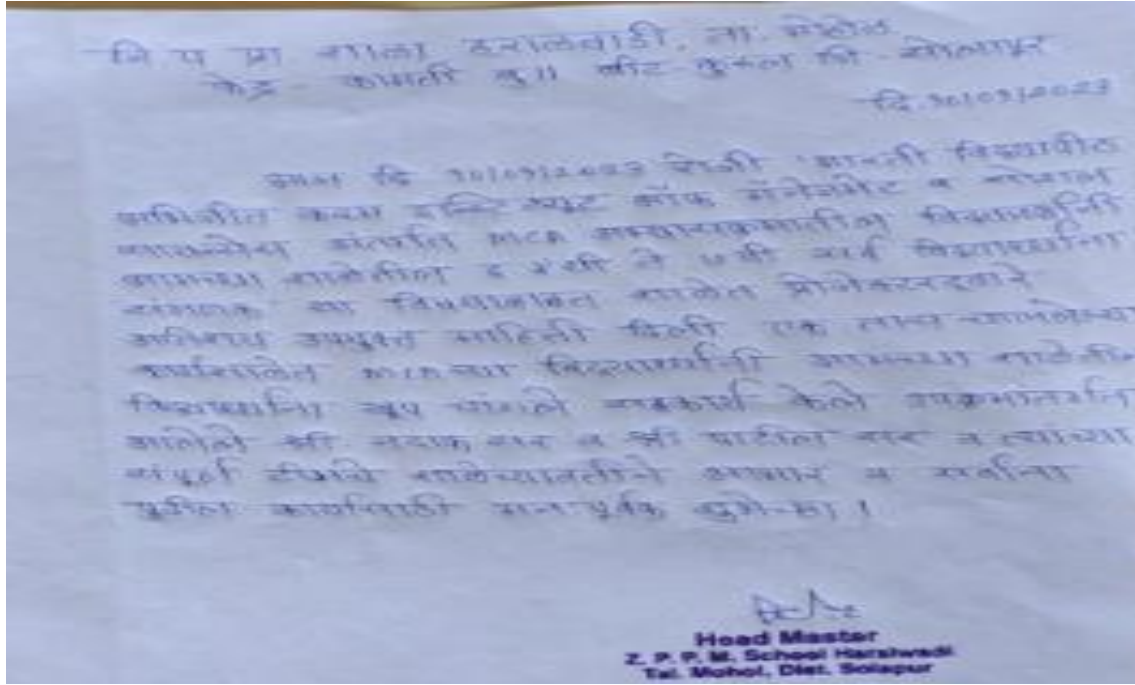 जि. प प्रा शाळा हराळवाडी, ता. मोहोळ
केंद्र - कामती बु॥ बीट कुरुल जि - सोलापूर
दि. १०/०१/२०२३
आज दि १०/०१/२०२३ रोजी भारती विद्यापीठ
अभिजीत कदम इन्स्टिट्यूट ऑफ मॅनेजमेंट व सोशल
सायन्सेस अंतर्गत MCA अभ्यासक्रमातील विद्यार्थ्यांनी
आमच्या शाळेतील इ १ली ते ७वी सर्व विद्यार्थ्यांना
संगणक या विषयाबाबत शाळेत प्रोजेक्टरद्वारे
अतिशय उपयुक्त माहिती दिली एक तास चाललेल्या
कार्यशाळेत MCA च्या विद्यार्थ्यांनी आमच्या शाळेतील
विद्यार्थ्यांना खूप चांगले सहकार्य केले उपक्रमांतर्गत
आलेले श्री नदाफ सर व श्री पाटील सर व त्यांच्या
संपूर्ण टीमचे शाळेच्यावतीने आभार व सर्वांना
पुढील कार्यासाठी मनःपूर्वक शुभेच्छा !
Head Master
Z. P. P. M. School Haralwadi
Tal. Mohol, Dist. Solapur